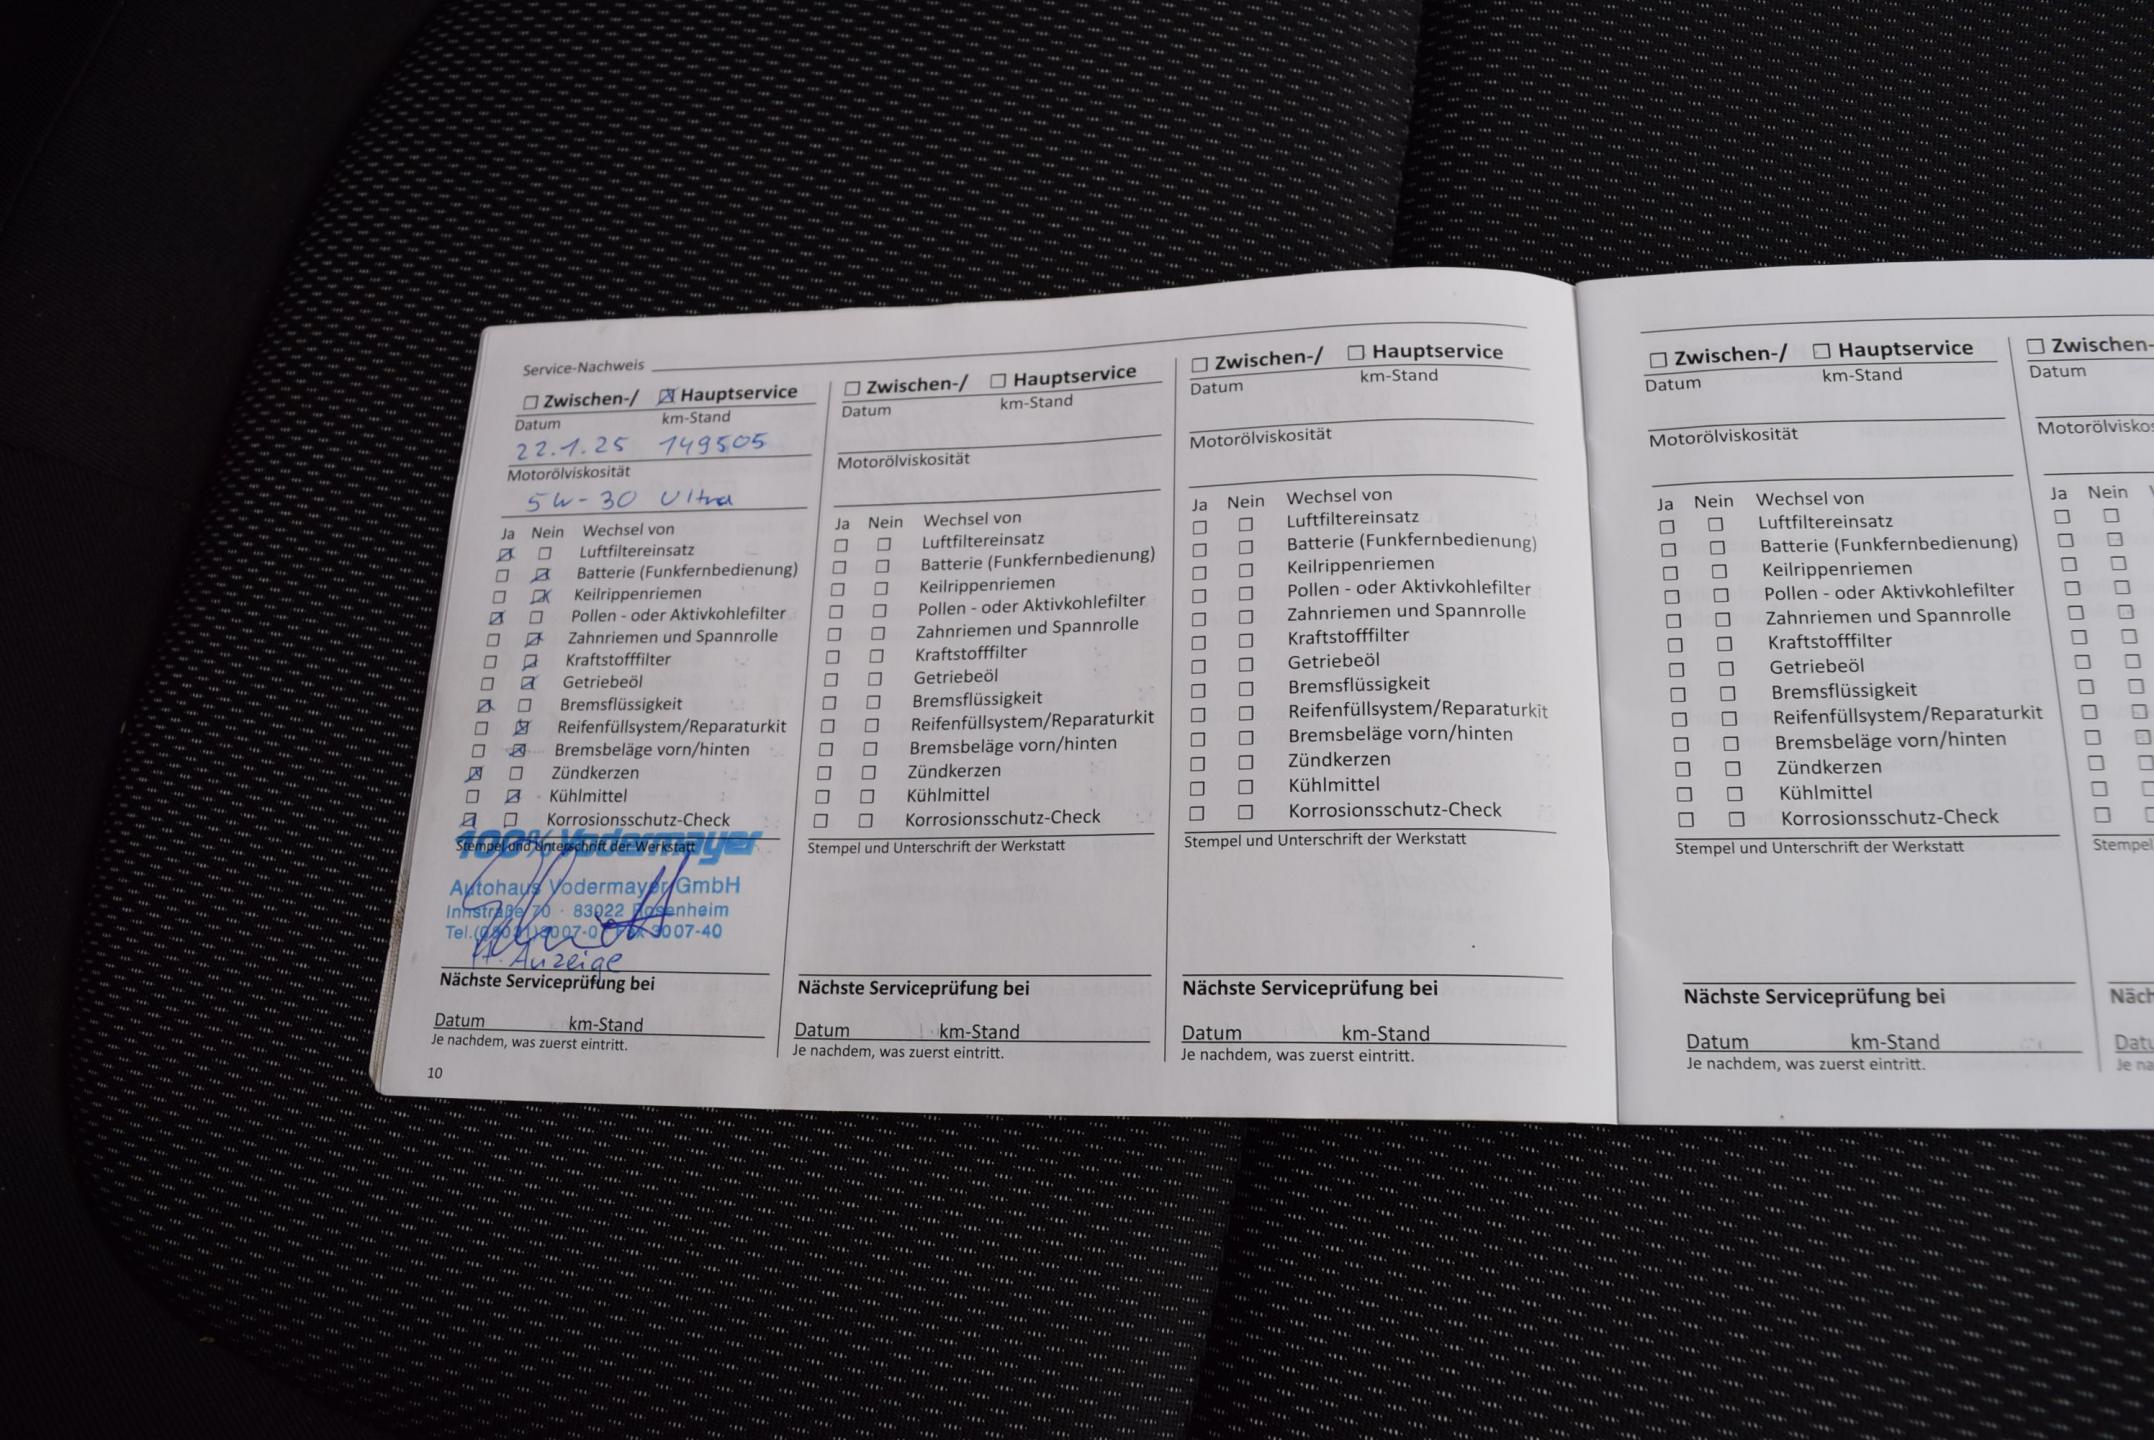 Service-Nachweis
☐ Zwischen-/ ☒ Hauptservice
Datum km-Stand
22.1.25 149505
Motorölviskosität
5W-30 Ultra
Ja Nein Wechsel von
☒ ☐ Luftfiltereinsatz
☐ ☒ Batterie (Funkfernbedienung)
☐ ☒ Keilrippenriemen
☒ ☐ Pollen - oder Aktivkohlefilter
☐ ☒ Zahnriemen und Spannrolle
☐ ☒ Kraftstofffilter
☐ ☒ Getriebeöl
☒ ☐ Bremsflüssigkeit
☐ ☒ Reifenfüllsystem/Reparaturkit
☐ ☒ Bremsbeläge vorn/hinten
☒ ☐ Zündkerzen
☐ ☒ Kühlmittel
☒ ☐ Korrosionsschutz-Check
100% Vodermayer
Stempel und Unterschrift der Werkstatt
Autohaus Vodermayer GmbH
Innstraße 70 · 83022 Rosenheim
Tel. (08031) 3007-0 Fax 3007-40
Anzeige
Nächste Serviceprüfung bei
Datum km-Stand
Je nachdem, was zuerst eintritt.
10
☐ Zwischen-/ ☐ Hauptservice
Datum km-Stand
Motorölviskosität
Ja Nein Wechsel von
☐ ☐ Luftfiltereinsatz
☐ ☐ Batterie (Funkfernbedienung)
☐ ☐ Keilrippenriemen
☐ ☐ Pollen - oder Aktivkohlefilter
☐ ☐ Zahnriemen und Spannrolle
☐ ☐ Kraftstofffilter
☐ ☐ Getriebeöl
☐ ☐ Bremsflüssigkeit
☐ ☐ Reifenfüllsystem/Reparaturkit
☐ ☐ Bremsbeläge vorn/hinten
☐ ☐ Zündkerzen
☐ ☐ Kühlmittel
☐ ☐ Korrosionsschutz-Check
Stempel und Unterschrift der Werkstatt
Nächste Serviceprüfung bei
Datum km-Stand
Je nachdem, was zuerst eintritt.
☐ Zwischen-/ ☐ Hauptservice
Datum km-Stand
Motorölviskosität
Ja Nein Wechsel von
☐ ☐ Luftfiltereinsatz
☐ ☐ Batterie (Funkfernbedienung)
☐ ☐ Keilrippenriemen
☐ ☐ Pollen - oder Aktivkohlefilter
☐ ☐ Zahnriemen und Spannrolle
☐ ☐ Kraftstofffilter
☐ ☐ Getriebeöl
☐ ☐ Bremsflüssigkeit
☐ ☐ Reifenfüllsystem/Reparaturkit
☐ ☐ Bremsbeläge vorn/hinten
☐ ☐ Zündkerzen
☐ ☐ Kühlmittel
☐ ☐ Korrosionsschutz-Check
Stempel und Unterschrift der Werkstatt
Nächste Serviceprüfung bei
Datum km-Stand
Je nachdem, was zuerst eintritt.
☐ Zwischen-/ ☐ Hauptservice
Datum km-Stand
Motorölviskosität
Ja Nein Wechsel von
☐ ☐ Luftfiltereinsatz
☐ ☐ Batterie (Funkfernbedienung)
☐ ☐ Keilrippenriemen
☐ ☐ Pollen - oder Aktivkohlefilter
☐ ☐ Zahnriemen und Spannrolle
☐ ☐ Kraftstofffilter
☐ ☐ Getriebeöl
☐ ☐ Bremsflüssigkeit
☐ ☐ Reifenfüllsystem/Reparaturkit
☐ ☐ Bremsbeläge vorn/hinten
☐ ☐ Zündkerzen
☐ ☐ Kühlmittel
☐ ☐ Korrosionsschutz-Check
Stempel und Unterschrift der Werkstatt
Nächste Serviceprüfung bei
Datum km-Stand
Je nachdem, was zuerst eintritt.
☐ Zwischen-
Datum
Motorölvisko
Ja Nein
Stempel
Näch
Datu
Je na